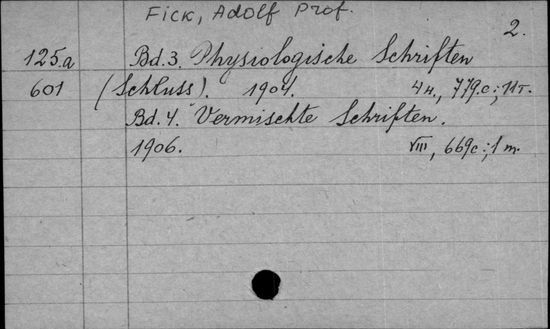 Fick, Adolf Prof.
2.
125.a Bd.3. Physiologische Schriften
601 (Schluss). 1904. 4н., 779.с.; 11т.
Bd.4. Vermischte Schriften.
1906. VIII, 669с.; 1 m.